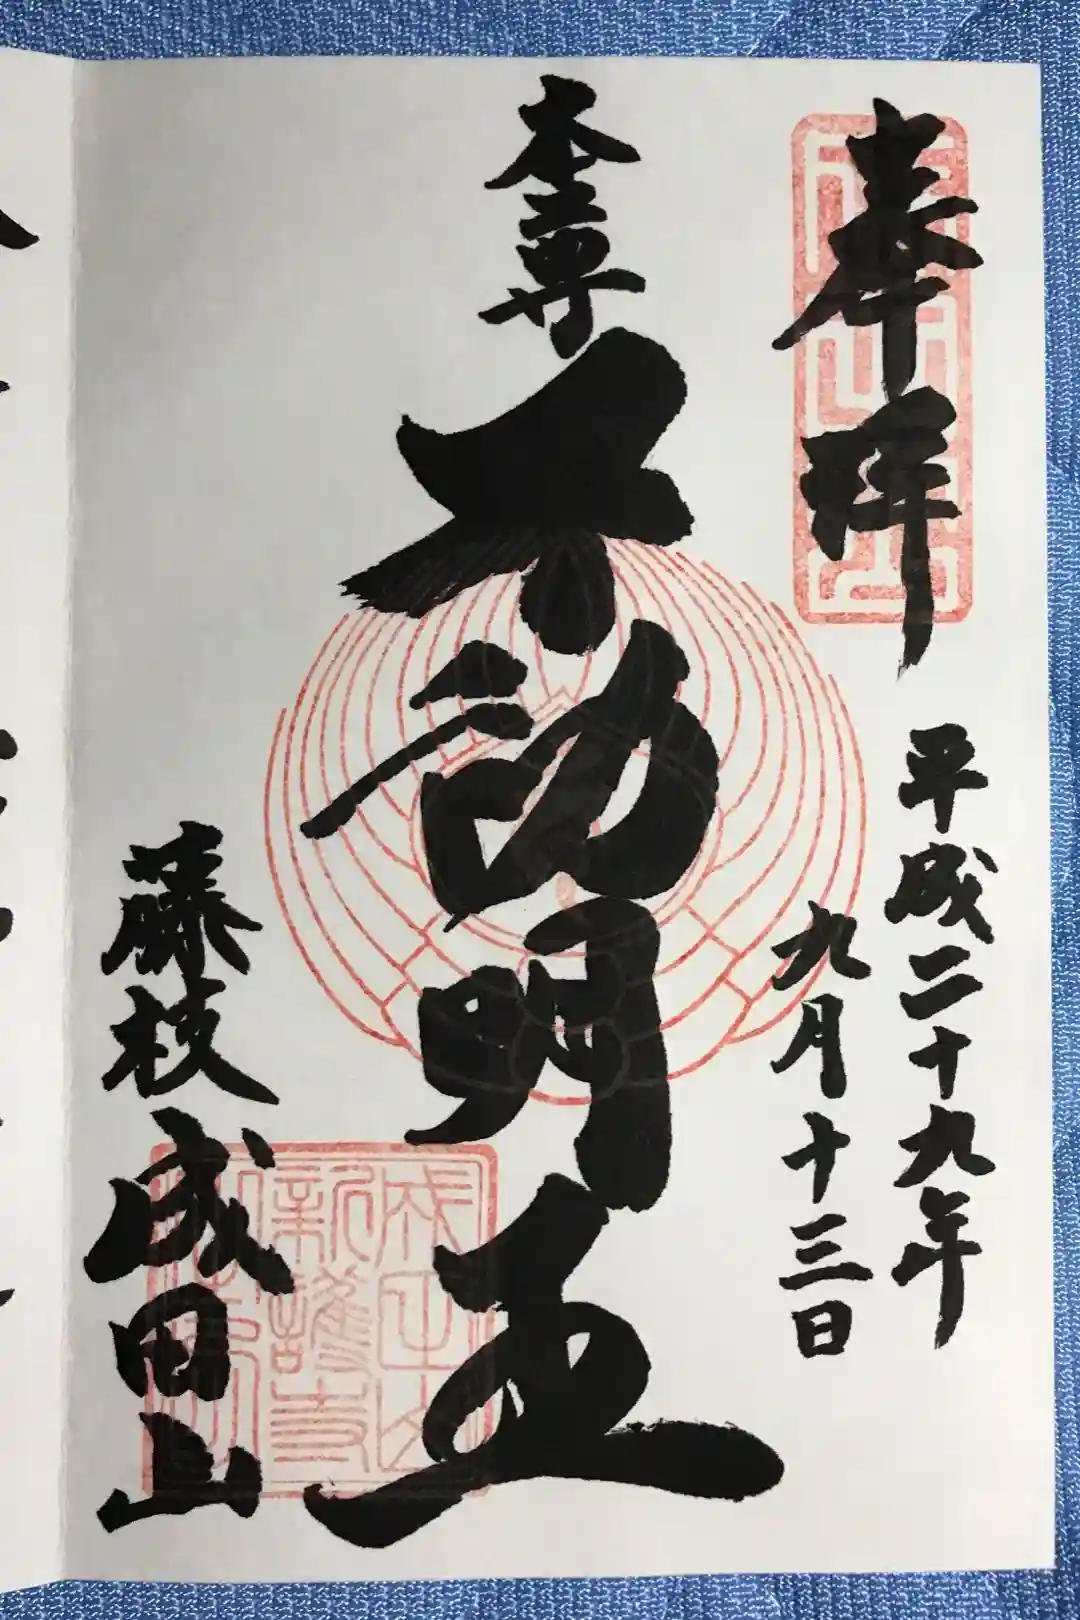 奉拝
平成二十九年
九月十三日
本尊
不動明王
藤枝成田山
成田山
新護寺